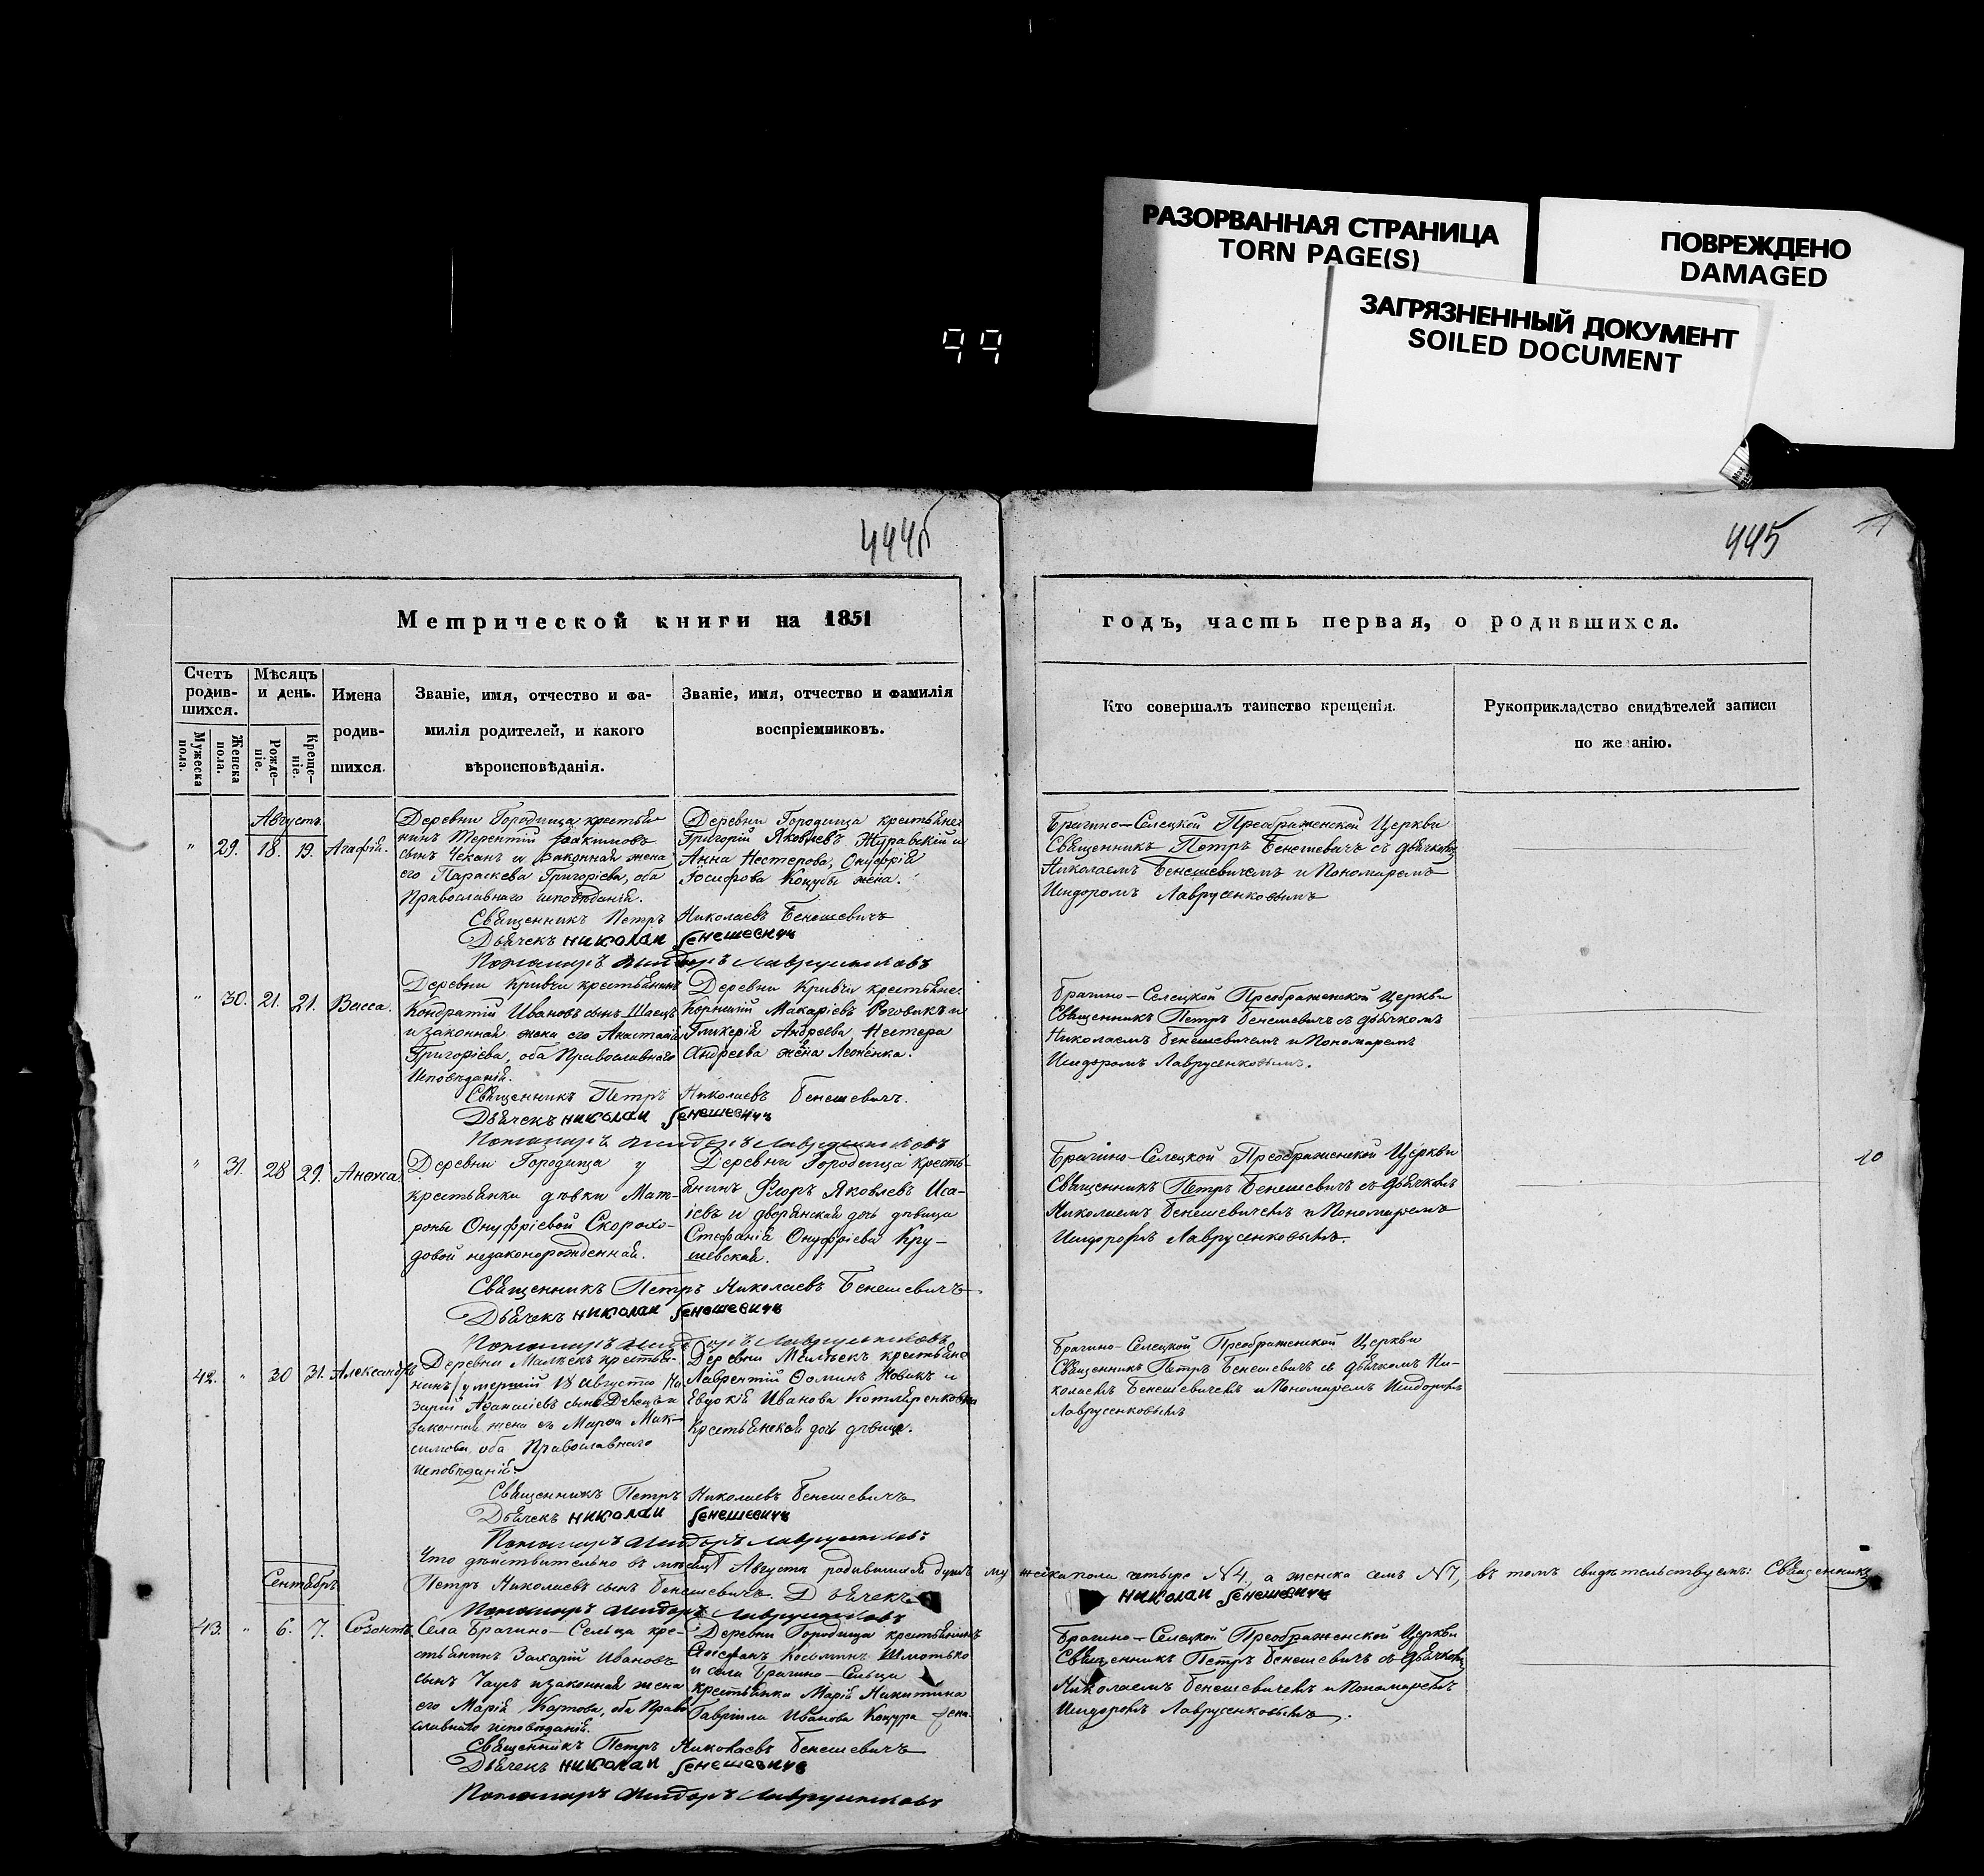 РАЗОРВАННАЯ СТРАНИЦА
TORN PAGE(S)
ПОВРЕЖДЕНО
DAMAGED
ЗАГРЯЗНЕННЫЙ ДОКУМЕНТ
SOILED DOCUMENT
99
444б
445
Метрической книги на 1851
годъ, часть первая, о родившихся.
Счетъ родив-
шихся.
Мужеска пола.
Женска пола.
Мѣсяцъ
и день.
Рожде-
ніе.
Креще-
ніе.
Имена
родив-
шихся.
Званіе, имя, отчество и фа-
милія родителей, и какого
вѣроисповѣданія.
Званіе, имя, отчество и фамилія
воспріемниковъ.
Кто совершалъ таинство крещенія.
Рукоприкладство свидѣтелей записи
по же анію.
Августъ
" 29. 18. 19. Агафія.
Деревни Городища крестья-
нинъ Терентій Іоакимовъ
сынъ Чеканъ и законная жена
его Параскева Григоріева, оба
Православнаго исповѣданія.
Деревни Городища крестьяне:
Григорій Яковлевъ Журавскій и
Анна Нестерова, Онуфрія
Іосифова Коцубы жена.
Брагино-Селецкой Преображенской Церкви
Священникъ Петръ Бенешевичъ съ дьячкомъ
Николаемъ Бенешевичемъ и Пономаремъ
Исидоромъ Лаврусенковымъ
Священникъ Петръ Николаевъ Бенешевичъ
Дьячекъ николаи бенешевичъ
Пономарь Исидоръ Лаврусенковъ
" 30. 21. 21. Васса.
Деревни Кривчи крестьянинъ
Кондратій Ивановъ сынъ Швецъ
и законная жена его Анастасія
Григоріева, оба Православнаго
Исповѣданія.
Деревни Кривчи крестьяне:
Корнилій Макаріевъ Роговикъ и
Гликерія Андреева Нестера
Андреева жена Леоненка.
Брагино-Селецкой Преображенской Церкви
Священникъ Петръ Бенешевичъ съ дьячкомъ
Николаемъ Бенешевичемъ и Пономаремъ
Исидоромъ Лаврусенковымъ.
Священникъ Петръ Николаевъ Бенешевичъ.
Дьячекъ николаи бенешевичъ
Пономарь Исидоръ Лаврусенковъ
" 31. 28 29. Анѳиса
Деревни Городища у
крестьянки дѣвки Мат-
роны Онуфріевой Скорохо-
довой незаконорожденная.
Деревни Городища кресть-
янинъ Флоръ Яковлевъ Иса-
іевъ и дворянская дочь дѣвица
Стефанія Онуфріева Кру-
шевская.
Брагино-Селецкой Преображенской Церкви
Священникъ Петръ Бенешевичъ съ дьячкомъ
Николаемъ Бенешевичемъ и Пономаремъ
Исидоромъ Лаврусенковымъ.
10
Священникъ Петръ Николаевъ Бенешевичъ
Дьячекъ николаи бенешевичъ
Пономарь Исидоръ Лаврусенковъ
42. " 30 31. Александръ
Деревни Малѣекъ крестья-
нинъ (умершій 18 Августа) На-
зарій Аѳанасіевъ сынъ и
законная жена Марѳа Мак-
симова, оба Православнаго
исповѣданія.
Деревни Малѣекъ крестьяне
Лаврентій Ѳоминъ Новикъ и
Евдокія Иванова Котляренкова
крестьянская дочь дѣвица.
Брагино-Селецкой Преображенской Церкви
Священникъ Петръ Бенешевичъ съ дьячкомъ Ни-
колаемъ Бенешевичемъ и Пономаремъ Исидоромъ
Лаврусенковымъ
Священникъ Петръ Николаевъ Бенешевичъ
Дьячекъ николаи бенешевичъ
Пономарь Исидоръ Лаврусенковъ
Что дѣйствительно въ мѣсяцѣ Августѣ родившихся душъ мужеска пола четыре №4, а женска семь №7, въ томъ свидѣтельствуемъ: Священникъ
Петръ Николаевъ сынъ Бенешевичъ. Дьячекъ николаи бенешевичъ
Пономарь Исидоръ Лаврусенковъ
Сентябрь
43. " 6. 7. Созонтъ.
Села Брагино-Сельца кре-
стьянинъ Захарій Ивановъ
сынъ Чауръ и законная жена
его Марія Карпова, оба Право-
славнаго исповѣданія.
Деревни Городища крестьянинъ
Стефанъ Косминъ Шмотько
и села Брагино-Сельца
крестьянка Марія Никитина
Гавріила Иванова Коцура жена.
Брагино-Селецкой Преображенской Церкви
Священникъ Петръ Бенешевичъ съ дьячкомъ
Николаемъ Бенешевичемъ и Пономаремъ
Исидоромъ Лаврусенковымъ.
Священникъ Петръ Николаевъ Бенешевичъ
Дьячекъ николаи бенешевичъ
Пономарь Исидоръ Лаврусенковъ